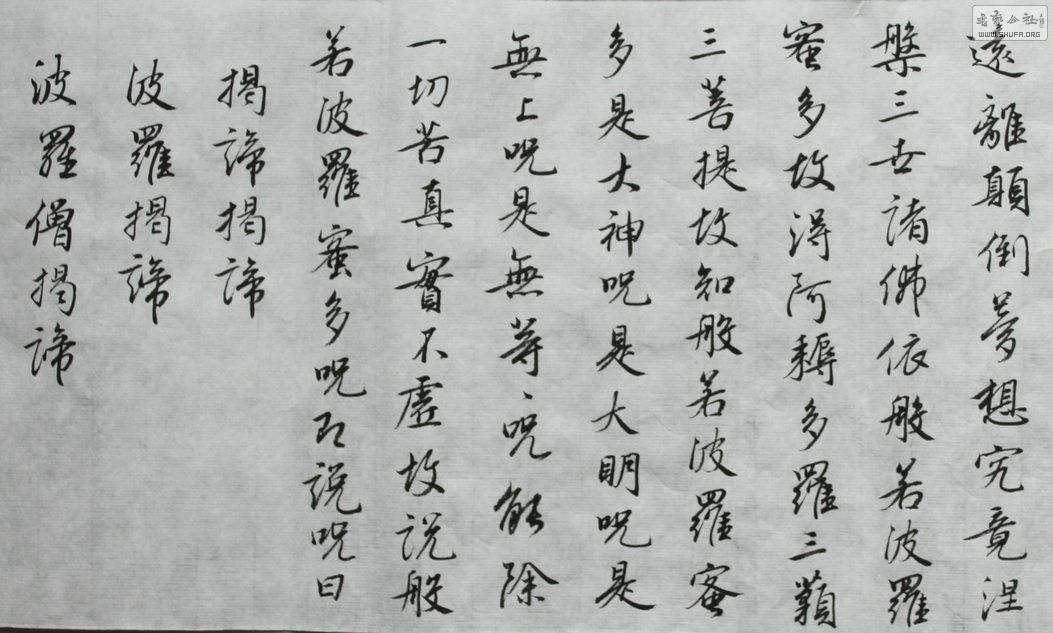 遠離顛倒夢想究竟涅
槃三世諸佛依般若波羅
蜜多故得阿耨多羅三藐
三菩提故知般若波羅蜜
多是大神咒是大明咒是
無上咒是無等等咒能除
一切苦真實不虛故説般
若波羅蜜多咒即説咒曰
揭諦揭諦
波羅揭諦
波羅僧揭諦
書藝公社
WWW.SHUFA.ORG